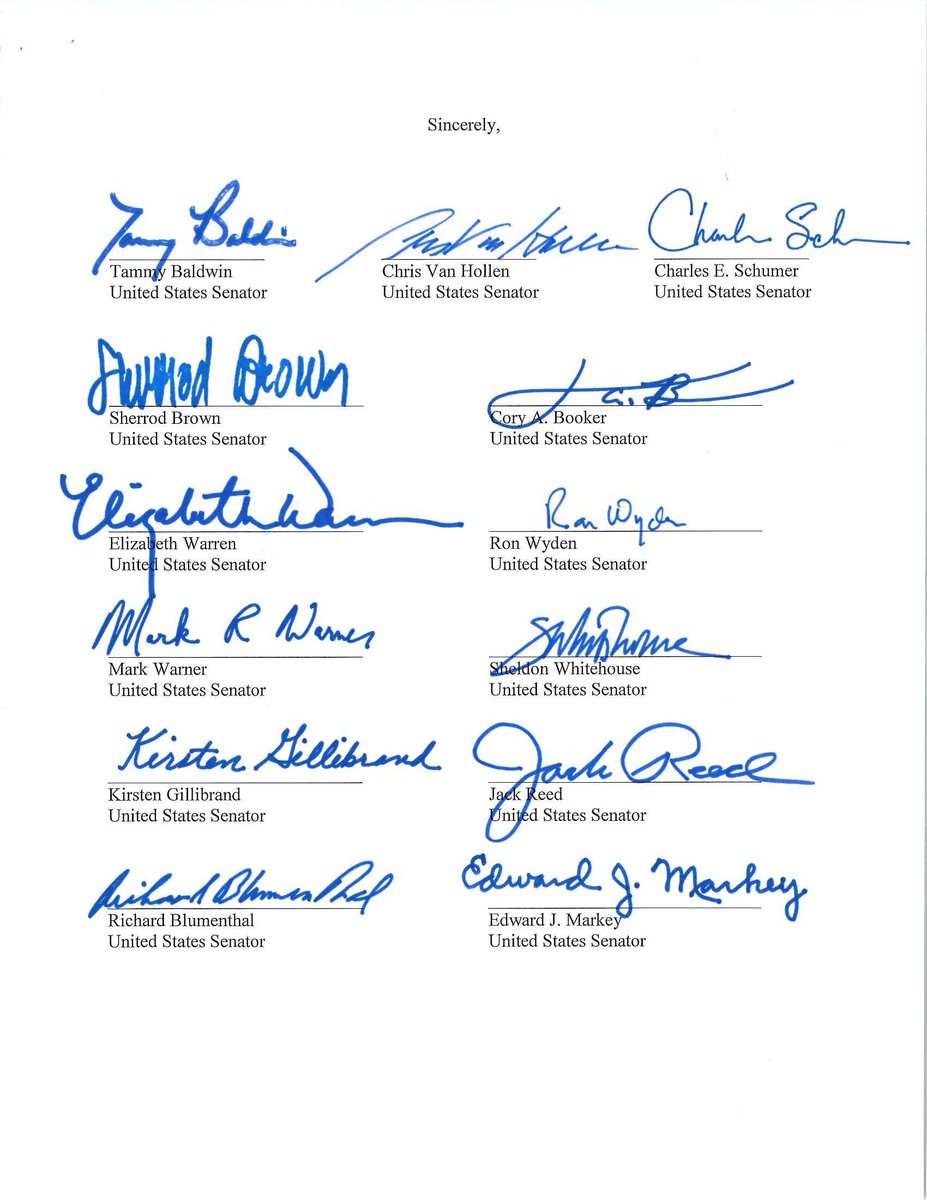 Sincerely,
Tammy Baldwin Chris Van Hollen Charles Sch
Tammy Baldwin Chris Van Hollen Charles E. Schumer
United States Senator United States Senator United States Senator
Sherrod Brown
Sherrod Brown Cory A. Booker
United States Senator United States Senator
Elizabeth Warren Ron Wyden
Elizabeth Warren Ron Wyden
United States Senator United States Senator
Mark R Warner SWhitehouse
Mark Warner Sheldon Whitehouse
United States Senator United States Senator
Kirsten Gillibrand Jack Reed
Kirsten Gillibrand Jack Reed
United States Senator United States Senator
Richard Blumenthal Edward J. Markey
Richard Blumenthal Edward J. Markey
United States Senator United States Senator